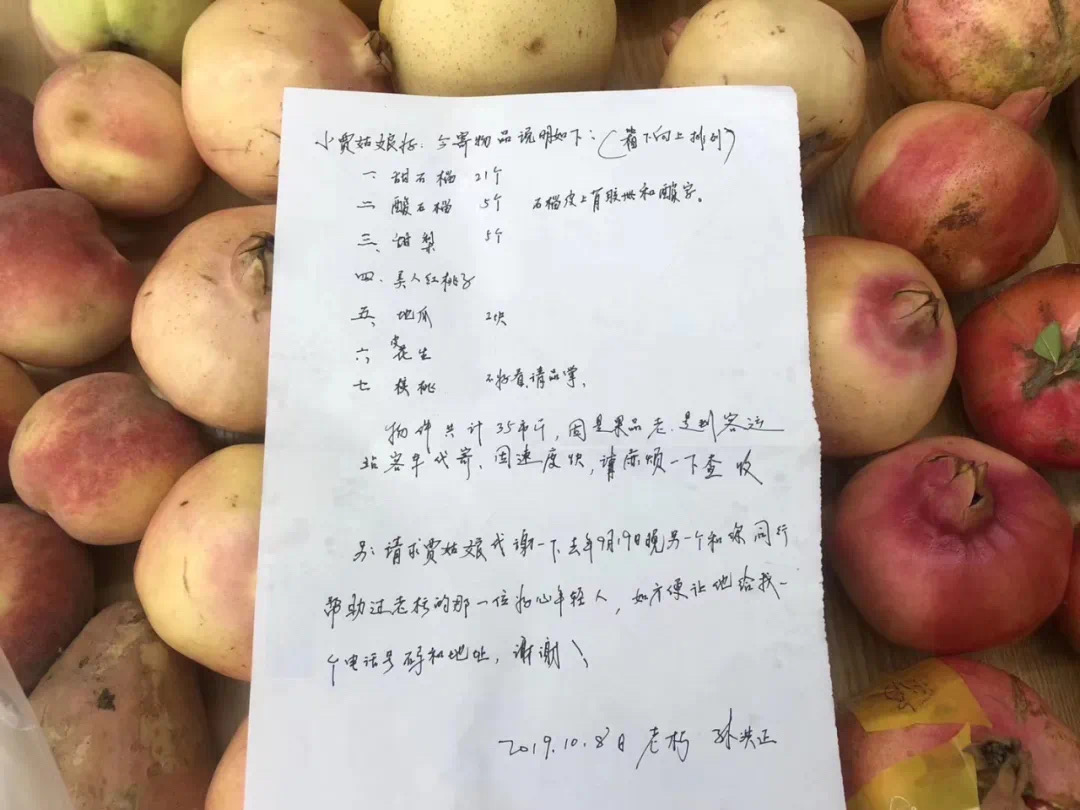 小贾姑娘好：今寄物品说明如下：（箱下向上排列）
一 甜石榴 21个
二、酸石榴 5个 石榴皮上有胶带和酸字。
三、甜梨 5个
四、美人红桃子
五、地瓜 2块
六、花生
七、核桃 不好看请品尝、
物件共计35市斤，因是果品老.是到客运
站客车代寄、因速度快，请麻烦一下查收
另：请求贾姑娘代谢一下去年9月19日晚另一个和你同行
帮助过老朽的那一位好心年轻人，如方便让他给我一
个电话号码和地址，谢谢！
2019.10.8日 老朽 孙洪正